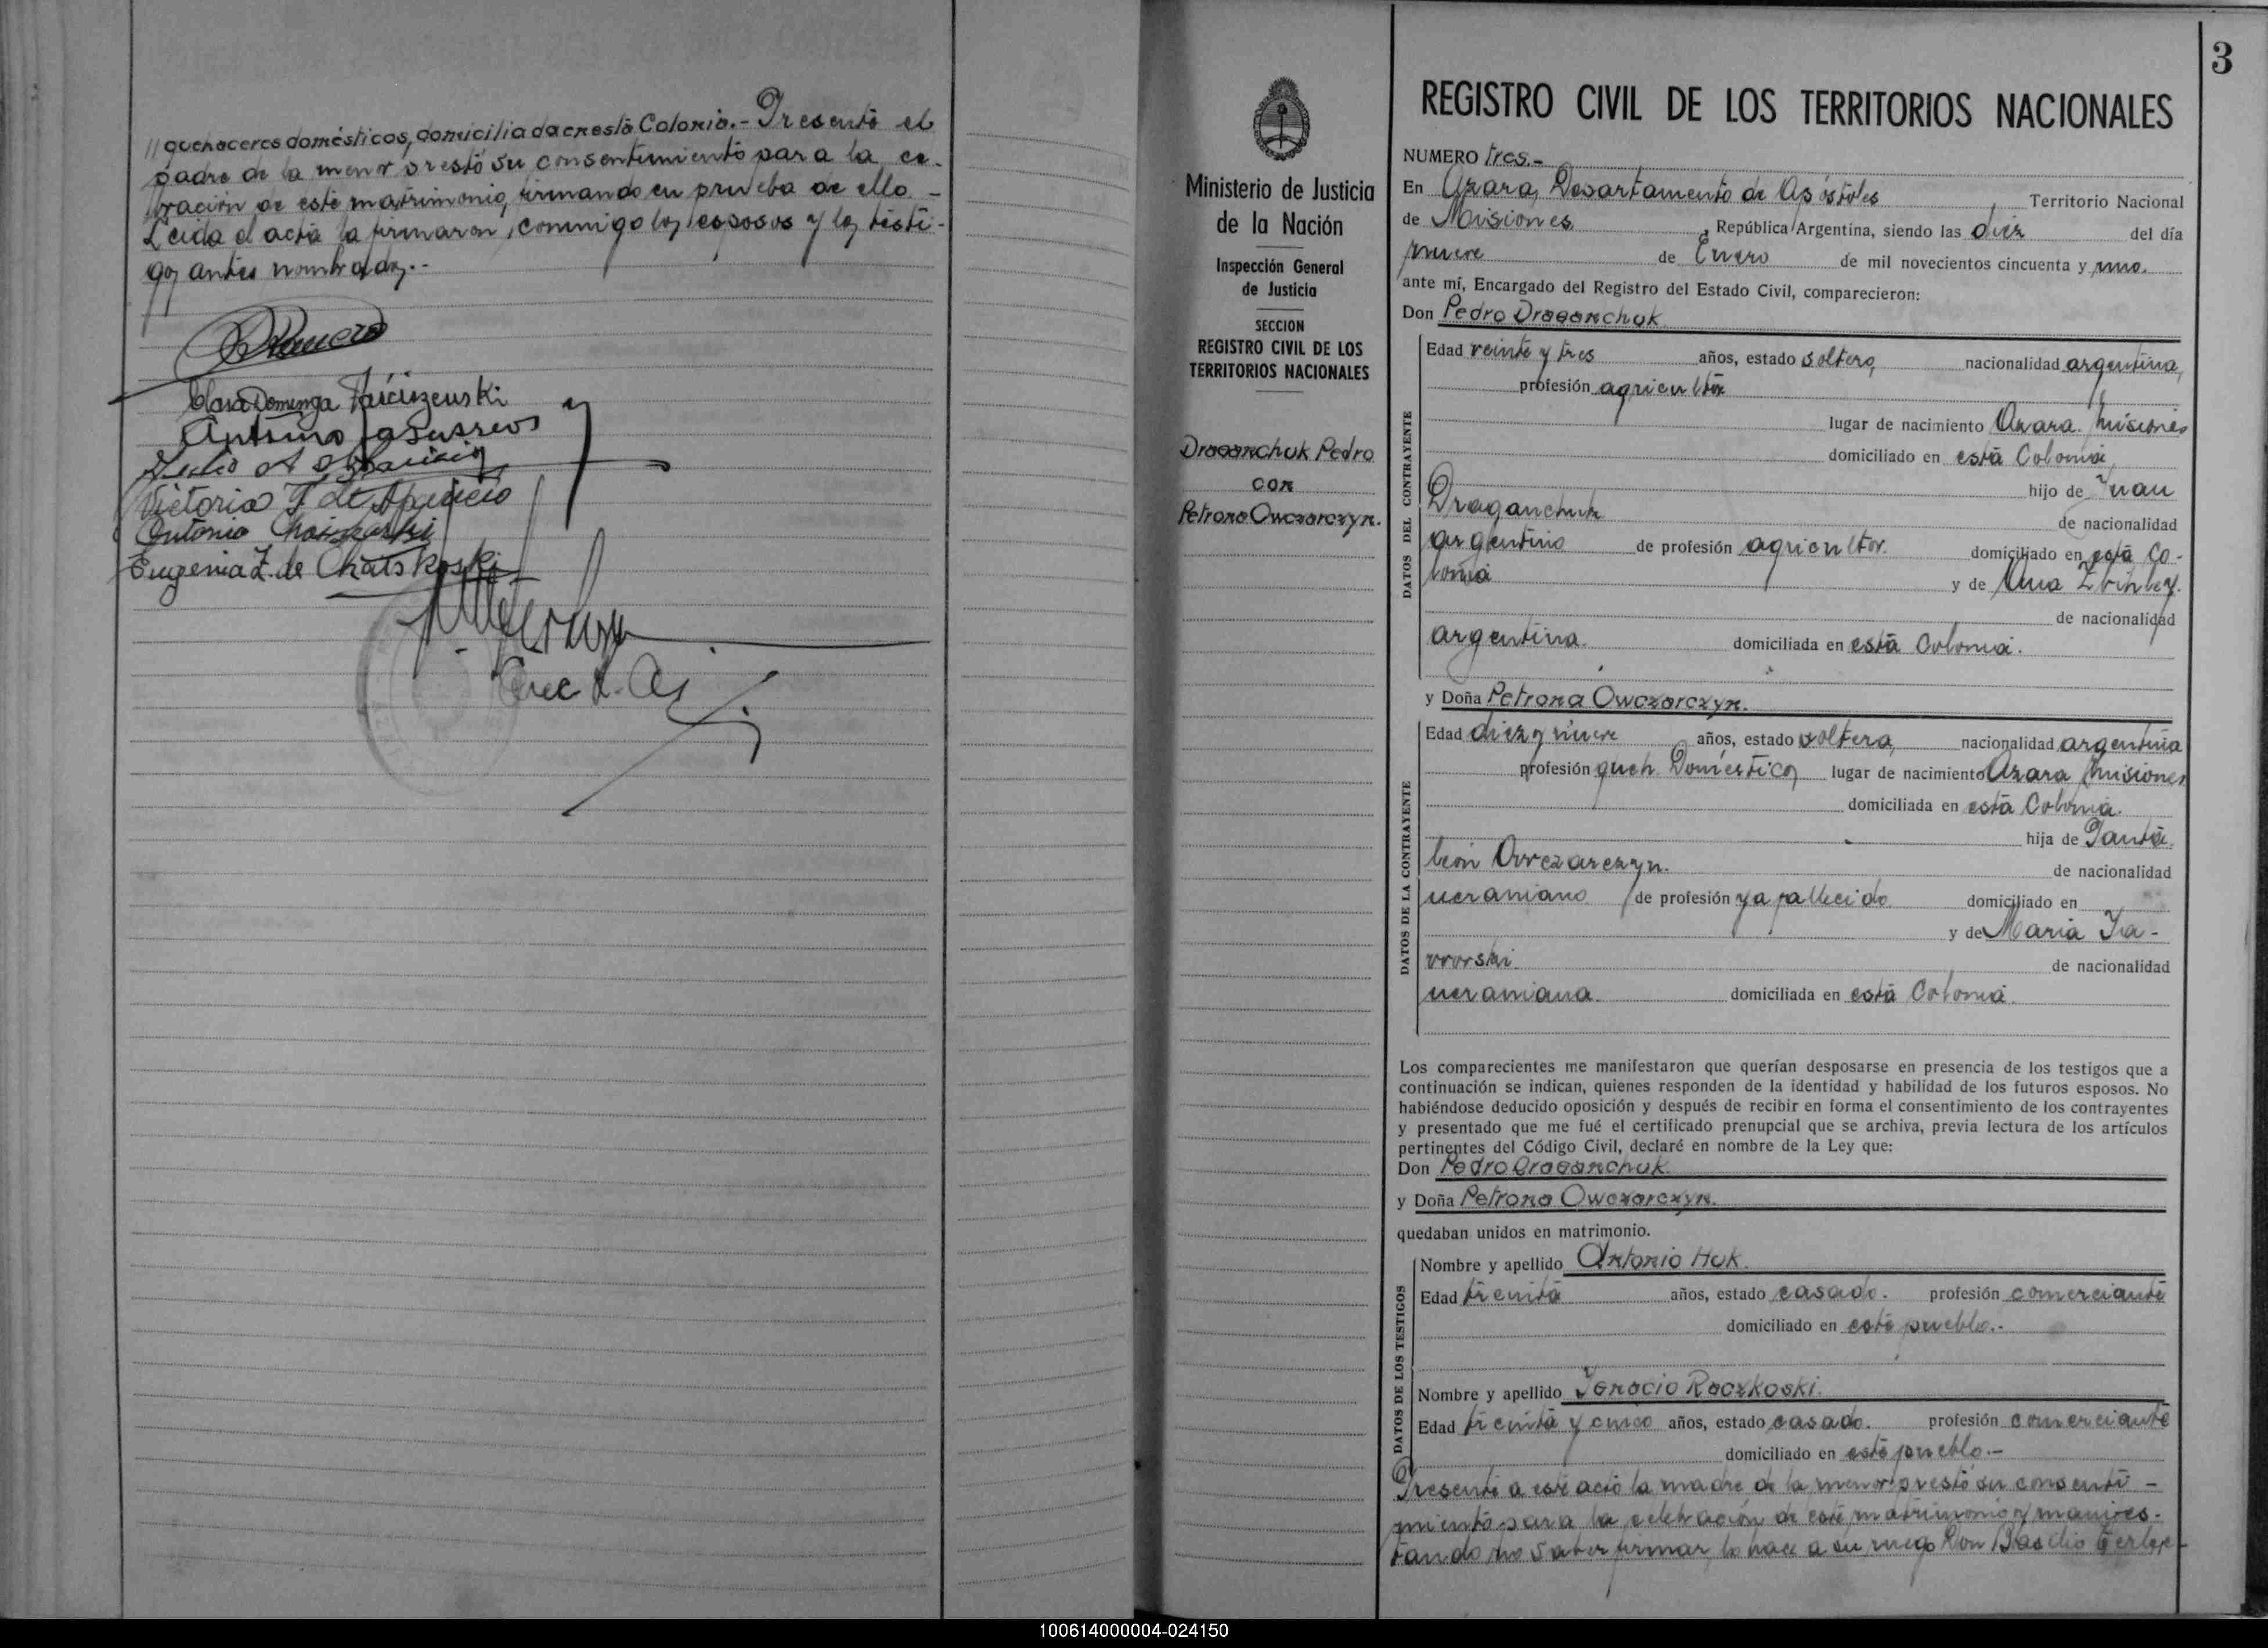 // quehaceres domésticos, domiciliada en esta Colonia.- Presente el
padre de la menor prestó su consentimiento para la ce-
bración de este matrimonio, firmando en prueba de ello -
Leida el acta la firmaron, conmigo los esposos y los testi-
gos antes nombrados.-
Clara Dominga
Antonio
Julio A Aparicio
Victoria F de Aparicio
Antonio
Eugenia Z. de Chatskoski
3
Ministerio de Justicia
de la Nación
Inspección General
de Justicia
SECCION
REGISTRO CIVIL DE LOS
TERRITORIOS NACIONALES
Draganchuk Pedro
con
Petrona Owczarczyn.
REGISTRO CIVIL DE LOS TERRITORIOS NACIONALES
NUMERO tres.-
En Azara, Departamento de Apóstoles Territorio Nacional
de Misiones, República Argentina, siendo las diez del día
nueve de Enero de mil novecientos cincuenta y uno.
ante mí, Encargado del Registro del Estado Civil, comparecieron:
Don Pedro Draganchuk
DATOS DEL CONTRAYENTE
Edad veinte y tres años, estado soltero, nacionalidad argentina,
profesión agricultor
lugar de nacimiento Azara. Misiones
domiciliado en esta Colonia,
hijo de Juan
Draganchuk de nacionalidad
argentino de profesión agricultor. domiciliado en esta Co-
lonia y de Ana
de nacionalidad
argentina. domiciliada en esta Colonia.
y Doña Petrona Owczarczyn.
DATOS DE LA CONTRAYENTE
Edad diez y nueve años, estado soltera, nacionalidad argentina
profesión queh. Domésticos lugar de nacimiento Azara Misiones
domiciliada en esta Colonia.
hija de Panta-
león Owczarczyn. de nacionalidad
ucraniano de profesión ya fallecido domiciliado en
y de Maria Ja-
worski de nacionalidad
ucraniana. domiciliada en esta Colonia.
Los comparecientes me manifestaron que querían desposarse en presencia de los testigos que a
continuación se indican, quienes responden de la identidad y habilidad de los futuros esposos. No
habiéndose deducido oposición y después de recibir en forma el consentimiento de los contrayentes
y presentado que me fué el certificado prenupcial que se archiva, previa lectura de los artículos
pertinentes del Código Civil, declaré en nombre de la Ley que:
Don Pedro Draganchuk.
y Doña Petrona Owczarczyn.
quedaban unidos en matrimonio.
DATOS DE LOS TESTIGOS
Nombre y apellido Antonio Huk.
Edad treinta años, estado casado. profesión comerciante
domiciliado en este pueblo.-
Nombre y apellido Ignacio Raczkoski.
Edad treinta y cinco años, estado casado. profesión comerciante
domiciliado en este pueblo.-
Presente a este acto la madre de la menor prestó su consenti-
miento para la celebración de este matrimonio y manifes-
tando no saber firmar, lo hace a su ruego Don Basilio
100614000004-024150